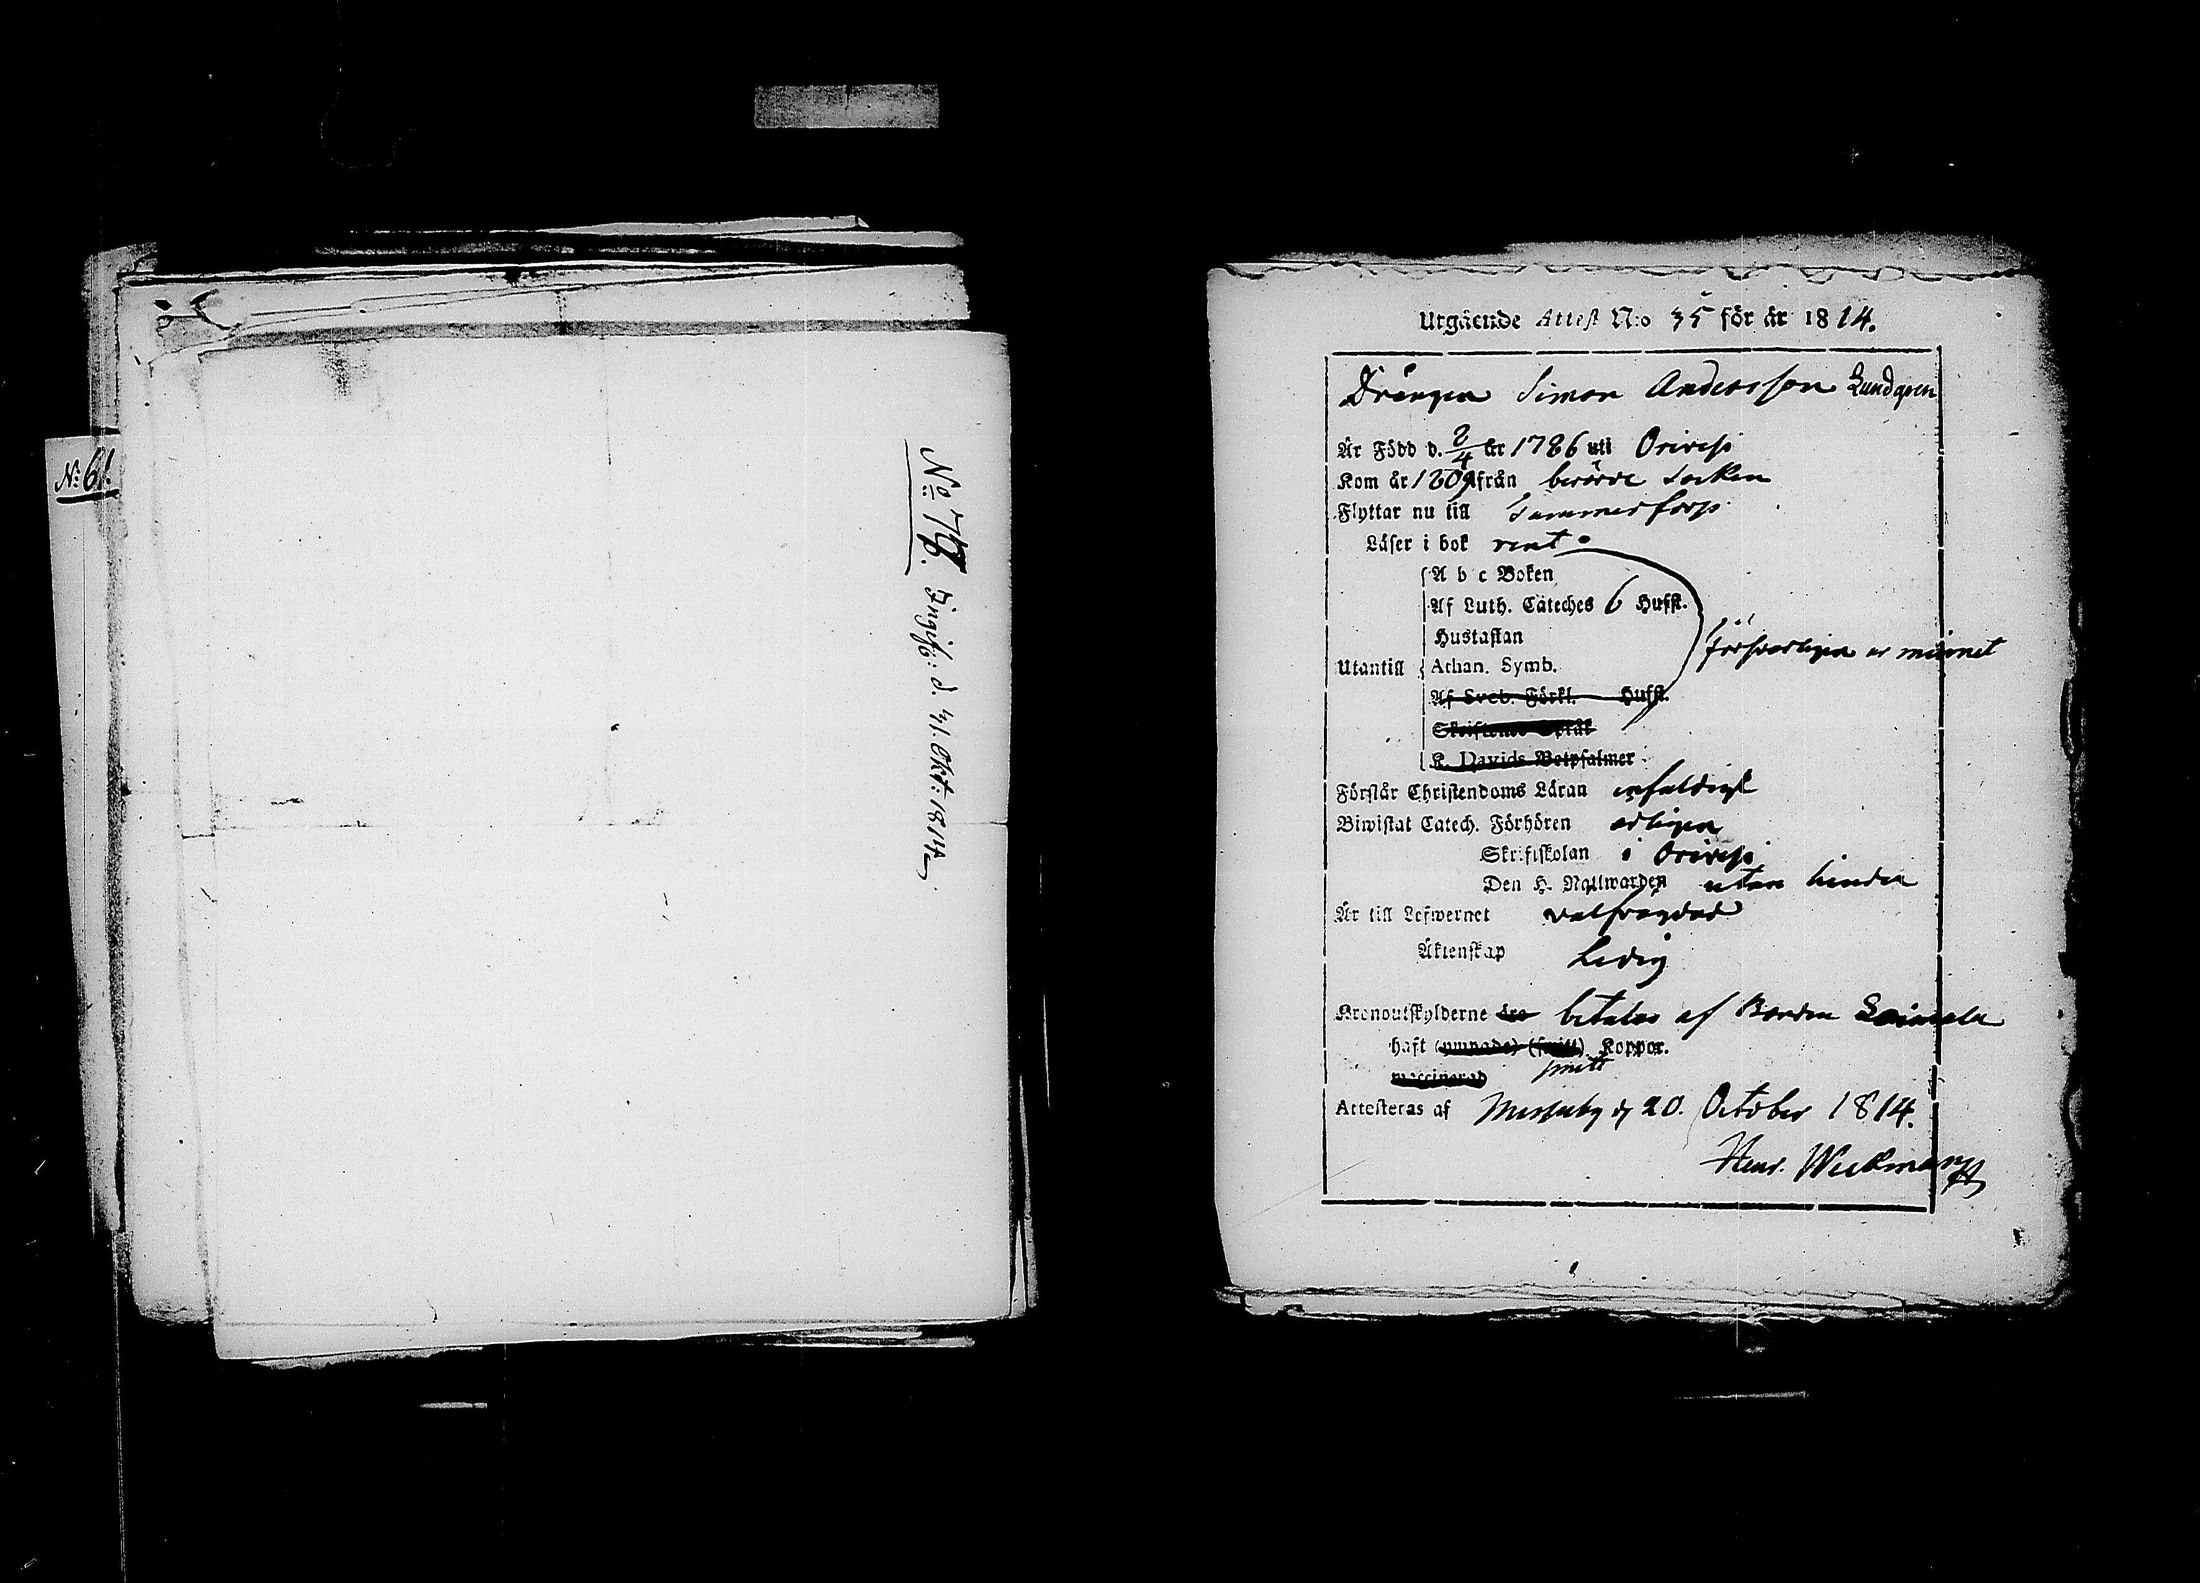 N: 61.
No 78. Ingifv: d. 31. Okt: 1814
Utgående Attest N:o 35 för år 1814.
Drängen Simon Andersson Lundgren
Är Född d. 8/4 år 1786 uti Orivesi
Kom år 1809 från berörde Socken
Flyttar nu till Tammerfors
Läser i bok rent
A b c Boken
Af Luth. Cateches 6 Hufst.
Hustaflan
Utantill Athan. Symb. försvarligen ur minnet
Af Sveb. Förkl. Hufst.
Skriftenes Språk
K. Davids Botpsalmer
Förstår Christendoms Läran enfaldigt
Biwistat Catech. Förhören årligen
Skriftskolan i Orivesi
Den H. Nattwarden utan hinder
Är till Lefwernet välfrägdad
Äktenskap Ledig
Kronoutskylderne äro betalas af Bonden
haft (ympade) (smitt) Koppor.
smitt
vaccinerad
Attesteras af Messuby d 20. October 1814.
Henr. Weckman